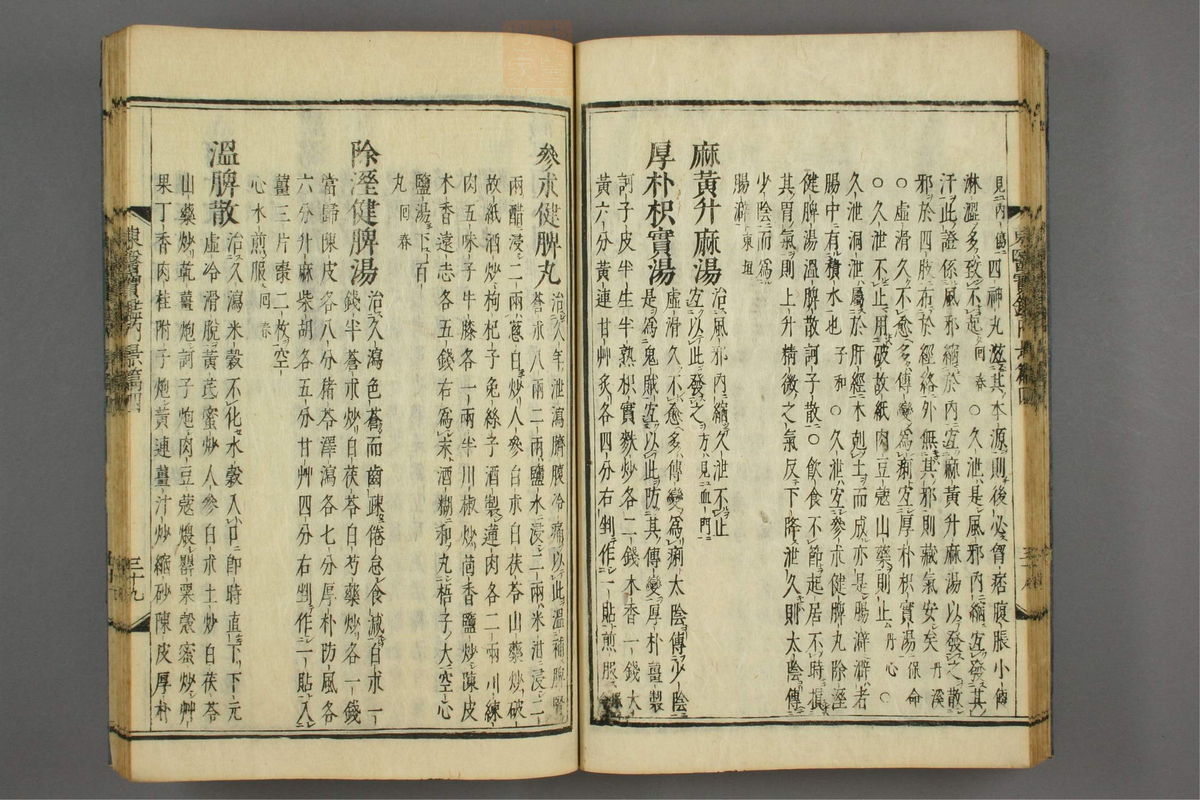 見內傷四神丸滋其本源則後必胷痞腹脹小便
淋澀多致不起回春○久泄是風邪內縮宜發其
汗此證係風邪縮於內宜麻黃升麻湯以發之散
邪於四肢布於經絡外無其邪則藏氣安矣丹溪
○虛滑久不愈多傳變爲痢宜厚朴枳實湯保命
○久泄不止用破故紙肉豆蔻山藥則止丹心○
久泄洞泄屬於肝經木剋土而成亦是腸澼澼者
腸中有積水也子和○久泄宜參朮健脾丸除溼
健脾湯溫脾散訶子散○飮食不節起居不時損
其胃氣則上升精微之氣反下降泄久則太陰傳
少陰而爲
腸澼東垣
麻黃升麻湯治風邪內縮久泄不止
宜以此發之方見血門
厚朴枳實湯虛滑久不愈多傳變爲痢太陰傳少陰
是爲鬼賊宜以此防其傳變厚朴薑製
訶子皮半生半熟枳實麩炒各二錢木香一錢大
黃六分黃連甘艸炙各四分右剉作一貼煎服
參朮健脾丸治久年泄瀉臍腹冷痛以此溫補脾腎
蒼朮八兩二兩鹽水浸二兩米泔浸二
兩醋浸二兩蔥白炒人參白朮白茯苓山藥炒破
故紙酒炒枸杞子兔絲子酒製蓮肉各二兩川練
肉五味子牛膝各一兩半川椒炒茴香鹽炒陳皮
木香遠志各五錢右爲末酒糊和丸梧子大空心
鹽湯下百
丸回春
除溼健脾湯治久瀉色蒼而齒疎倦怠食減白朮一
錢半蒼朮炒白茯苓白芍藥炒各一錢
當歸陳皮各八分猪苓澤瀉各七分厚朴防風各
六分升麻柴胡各五分甘艸四分右剉作一貼入
薑三片棗二枚空
心水煎服回春
溫脾散治久瀉米穀不化水穀入口卽時直下下元
虛冷滑脫黃芪蜜炒人參白朮土炒白茯苓
山藥炒乾薑炮訶子炮肉豆蔻煨罌粟殼蜜炒艸
果丁香肉桂附子炮黃連薑汁炒縮砂陳皮厚朴
東醫寶鑑內景篇四
三十九